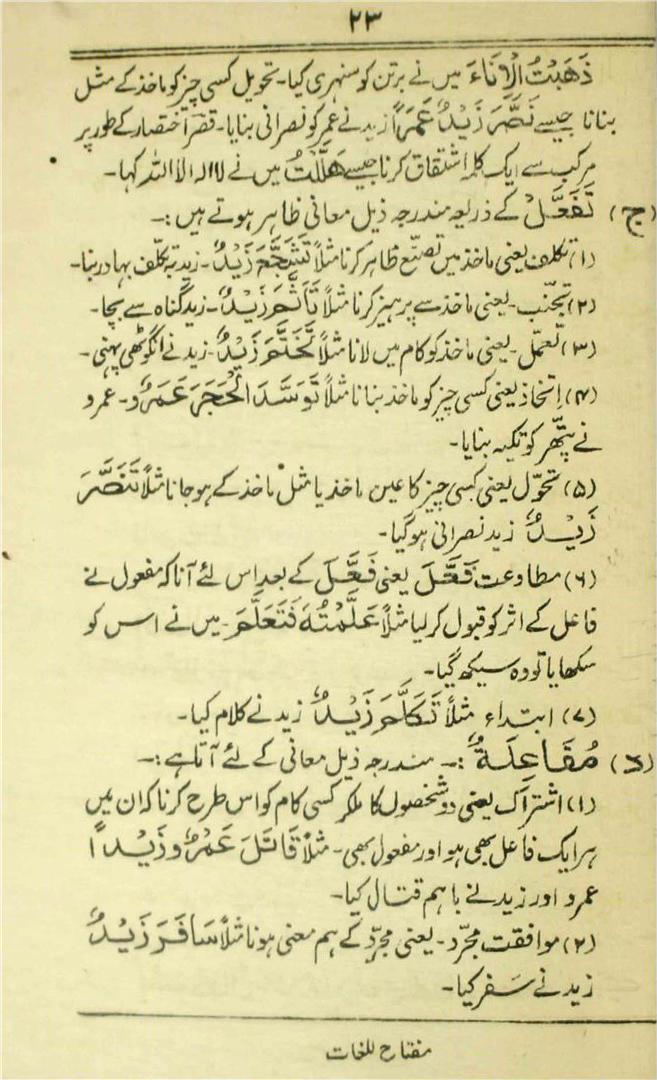 ۲۳
ذَهَّبْتُ الْاِنَاءَ میں نے برتن کو سنہری کیا۔ تحویل کسی چیز کو ماخذ کے مثل
بنانا جیسے نَصَّرَ زَيْدٌ عَمَرًا زید نے عمر کو نصرانی بنایا۔ قصر اختصار کے طور پر
مرکب سے ایک کلمہ اشتقاق کرنا جیسے هَلَّلْتُ میں نے لا الہ الا اللہ کہا۔
(ج) تَفَعَّلْ کے ذریعہ مندرجہ ذیل معانی ظاہر ہوتے ہیں :۔
(۱) تکلف یعنی ماخذ میں تصنّع ظاہر کرنا مثلاً تَشَجَّعَ زَيْدٌ۔ زید بہ تکلّف بہادر بنا۔
(۲) تجنّب۔ یعنی ماخذ سے پرہیز کرنا مثلاً تَأَثَّمَ زَيْدٌ۔ زید گناہ سے بچا۔
(۳) تعمّل۔ یعنی ماخذ کو کام میں لانا مثلاً تَخَتَّمَ زَيْدٌ۔ زید نے انگوٹھی پہنی۔
(۴) اِتخاذ یعنی کسی چیز کو ماخذ بنانا مثلاً تَوَسَّدَ الْحَجَرَ عَمْرٌو۔ عمرو
نے پتّھر کو تکیہ بنایا۔
(۵) تحوّل یعنی کسی چیز کا عین ماخذ یا مثل ماخذ کے ہو جانا مثلاً تَنَصَّرَ
زَيْدٌ زید نصرانی ہو گیا۔
(۶) مطاوعت فَعَّلَ یعنی فَعَّلَ کے بعد اس لئے آنا کہ مفعول نے
فاعل کے اثر کو قبول کر لیا مثلاً عَلَّمْتُهٗ فَتَعَلَّمَ۔ میں نے اس کو
سکھایا تو وہ سیکھ گیا۔
(۷) ابتداء مثلاً تَكَلَّمَ زَيْدٌ زید نے کلام کیا۔
(د) مُفَاعِلَةٌ :۔ مندرجہ ذیل معانی کے لئے آتا ہے :۔
(۱) اشتراک یعنی دو شخصوں کا ملکر کسی کام کو اس طرح کرنا کہ ان میں
ہر ایک فاعل بھی ہو اور مفعول بھی۔ مثلاً قَاتَلَ عَمْرٌو زَيْدًا
عمرو اور زید نے باہم قتال کیا۔
(۲) موافقت مجرّد۔ یعنی مجرّد کے ہم معنی ہونا مثلاً سَافَرَ زَيْدٌ
زید نے سفر کیا۔
مفتاح للغات